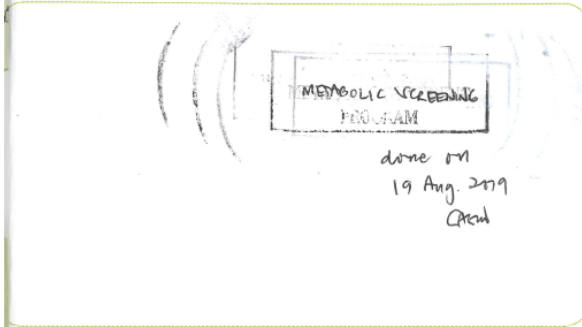 METABOLIC SCREENING
PROGRAM
done on
19 Aug. 2019